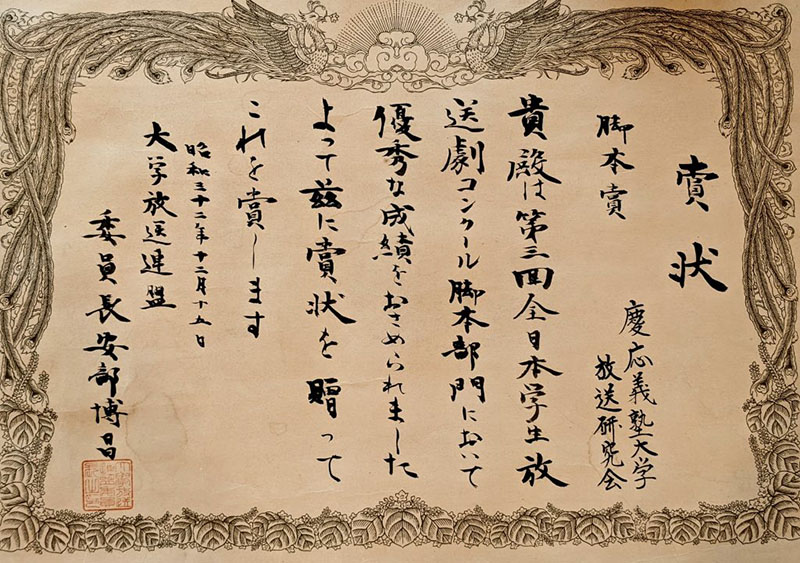 賞状
脚本賞
慶応義塾大学
放送研究会
貴殿は第三回全日本学生放
送劇コンクール脚本部門において
優秀な成績をおさめられました
よって茲に賞状を贈って
これを賞します
昭和三十二年十二月十五日
大学放送連盟
委員長安部博昌